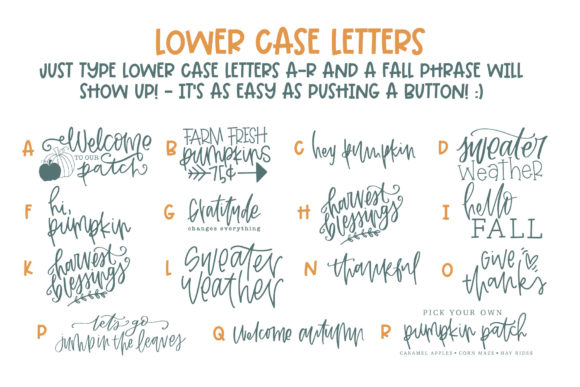 LOWER CASE LETTERS
JUST TYPE LOWER CASE LETTERS A-R AND A FALL PHRASE WILL
SHOW UP! - IT'S AS EASY AS PUSHING A BUTTON! :)
A
Welcome
TO OUR
patch
B
FARM FRESH
pumpkins
75¢
C
hey pumpkin
D
sweater
weather
F
hi,
pumpkin
G
Gratitude
changes everything
H
harvest
blessings
I
hello
FALL
K
harvest
blessings
L
sweater
weather
N
thankful
O
Give
thanks
P
let's go
jump in the leaves
Q
welcome autumn
R
PICK YOUR OWN
pumpkin patch
CARAMEL APPLES • CORN MAZE • HAY RIDES